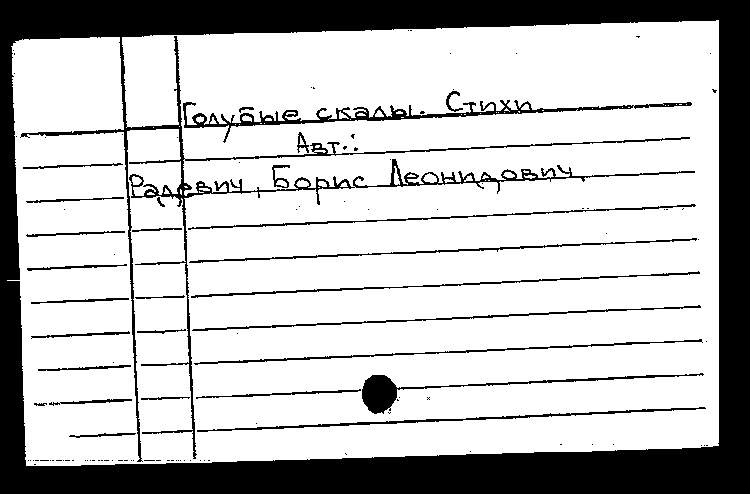 Голубые скалы. Стихи.
Авт.:
Радевич, Борис Леонидович.